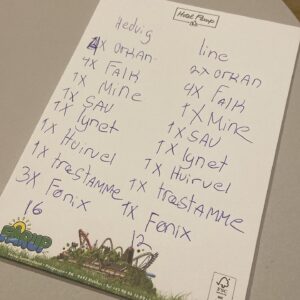 Hotel Fårup
Hedvig
4x Orkan
4x Falk
1x Mine
1x Sav
1x lynet
1x Hvirvel
1x træstamme
3x Fønix
16
line
2x Orkan
4x Falk
1x Mine
1x Sav
1x lynet
1x Hvirvel
1x træstamme
1x Fønix
12
FÅRUP
FSC